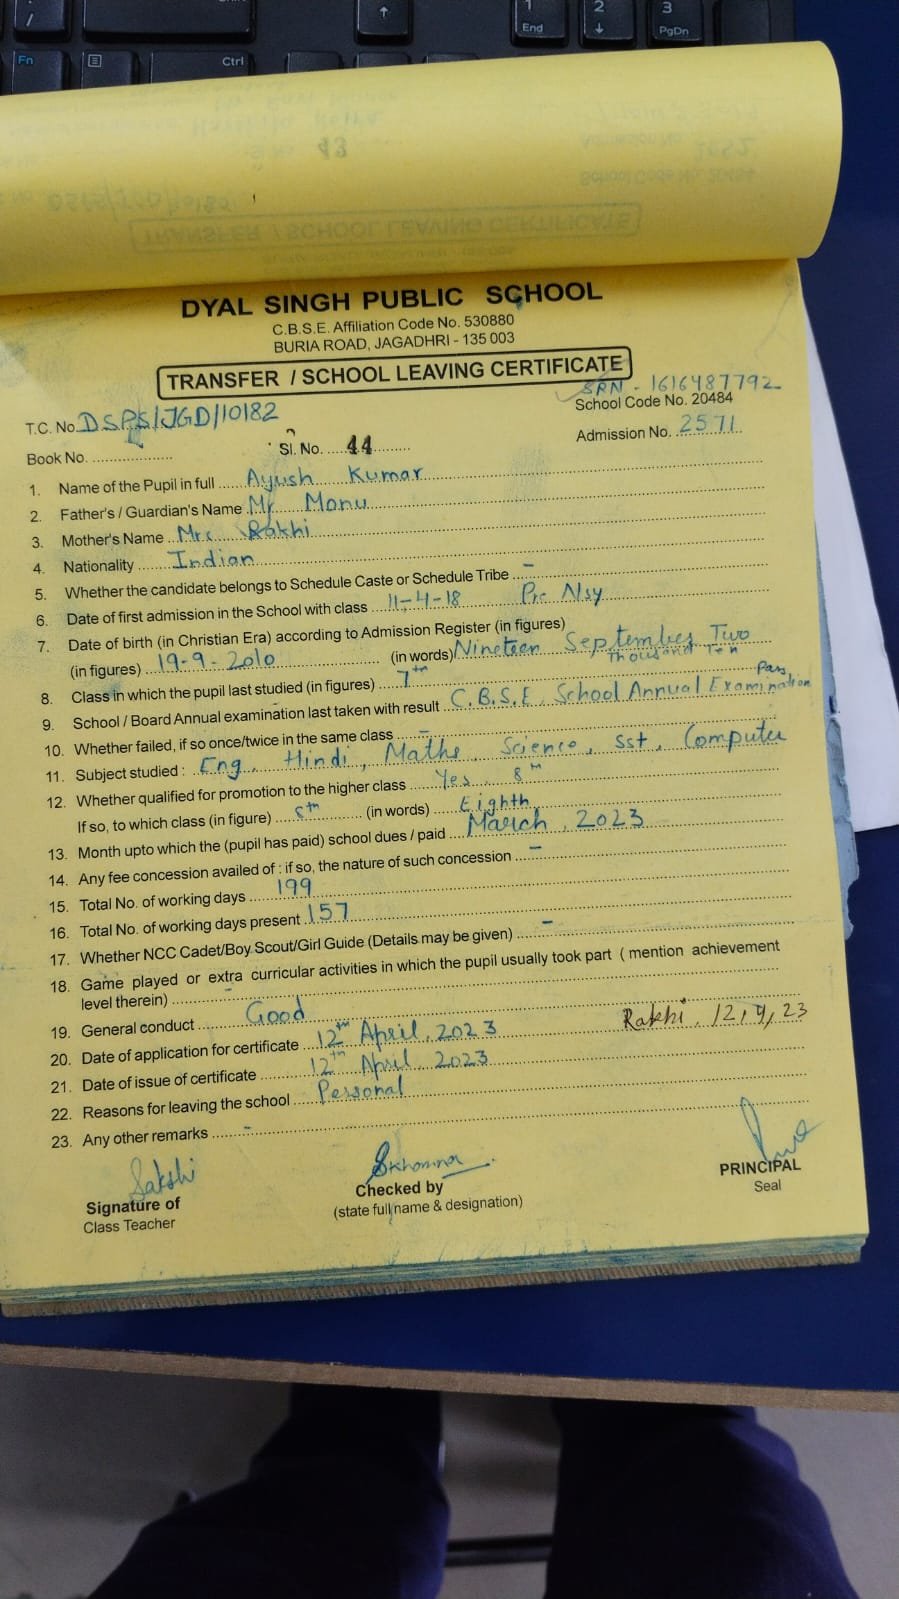 /
1
End
2
↓
3
PgDn
Fn
Ctrl
43
TRANSFER / SCHOOL LEAVING CERTIFICATE
DYAL SINGH PUBLIC SCHOOL
C.B.S.E. Affiliation Code No. 530880
BURIA ROAD, JAGADHRI - 135 003
TRANSFER / SCHOOL LEAVING CERTIFICATE
SRN - 1616487792
T.C. No. DSPS/JGD/10182
School Code No. 20484
Book No. ..................
Sl. No. ....44..........
Admission No. 2571
1. Name of the Pupil in full ..... Ayush Kumar
2. Father's / Guardian's Name Mr Monu
3. Mother's Name .. Mrs Rakhi
4. Nationality ....... Indian
5. Whether the candidate belongs to Schedule Caste or Schedule Tribe .. –
6. Date of first admission in the School with class ... 11-4-18 Pre Nsy
7. Date of birth (in Christian Era) according to Admission Register (in figures)
(in figures) .. 19-9-2010 .......... (in words) Nineteen September Two
Thousand Ten
8. Class in which the pupil last studied (in figures) .... 7th
9. School / Board Annual examination last taken with result .. C.B.S.E. School Annual Examination Pass
10. Whether failed, if so once/twice in the same class ..... –
11. Subject studied : .. Eng, Hindi, Maths, Science, SSt, Computer
12. Whether qualified for promotion to the higher class ..... Yes 8th
If so, to which class (in figure) .... 8th ......... (in words) .... Eighth
13. Month upto which the (pupil has paid) school dues / paid ... March, 2023
14. Any fee concession availed of : if so, the nature of such concession ... –
15. Total No. of working days ..... 199
16. Total No. of working days present . 157
17. Whether NCC Cadet/Boy Scout/Girl Guide (Details may be given) ..... –
18. Game played or extra curricular activities in which the pupil usually took part ( mention achievement
level therein) ......... –
19. General conduct ......... Good
20. Date of application for certificate ... 12th April, 2023
Rakhi, 12,4,23
21. Date of issue of certificate ......... 12th April 2023
22. Reasons for leaving the school ..... Personal
23. Any other remarks ..... –
Sakshi
Signature of
Class Teacher
Checked by
(state full name & designation)
PRINCIPAL
Seal